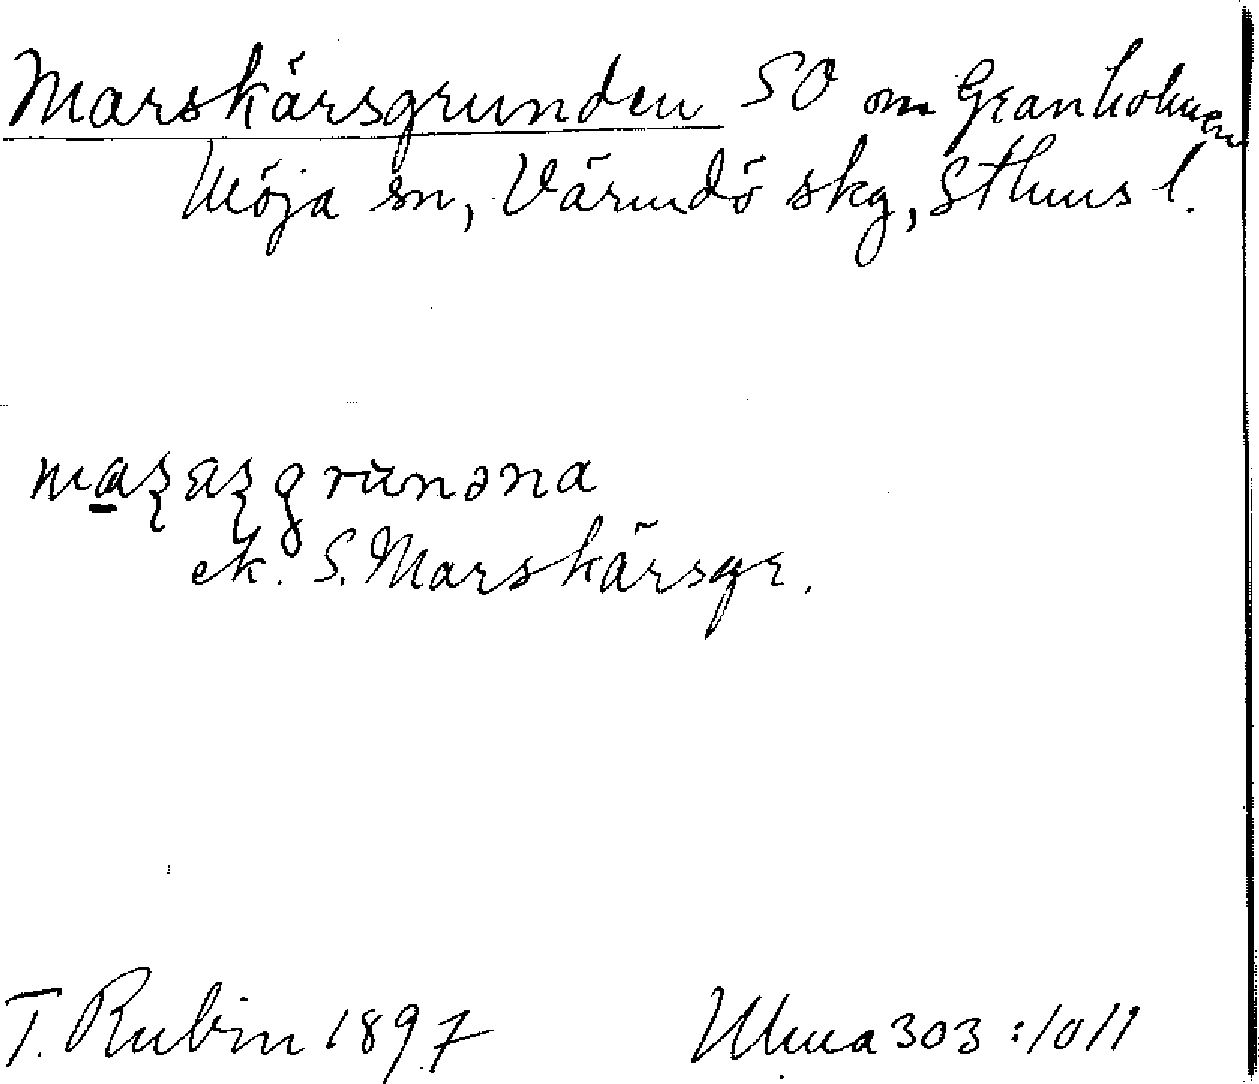 Marskärsgrunden SO om Granholmen
Möja sn, Värmdö skg, Sthms l.
maʂaʂgrunəna
ek. S. Marskärsgr.
T. Rubin 1897 Ulma 303:1011